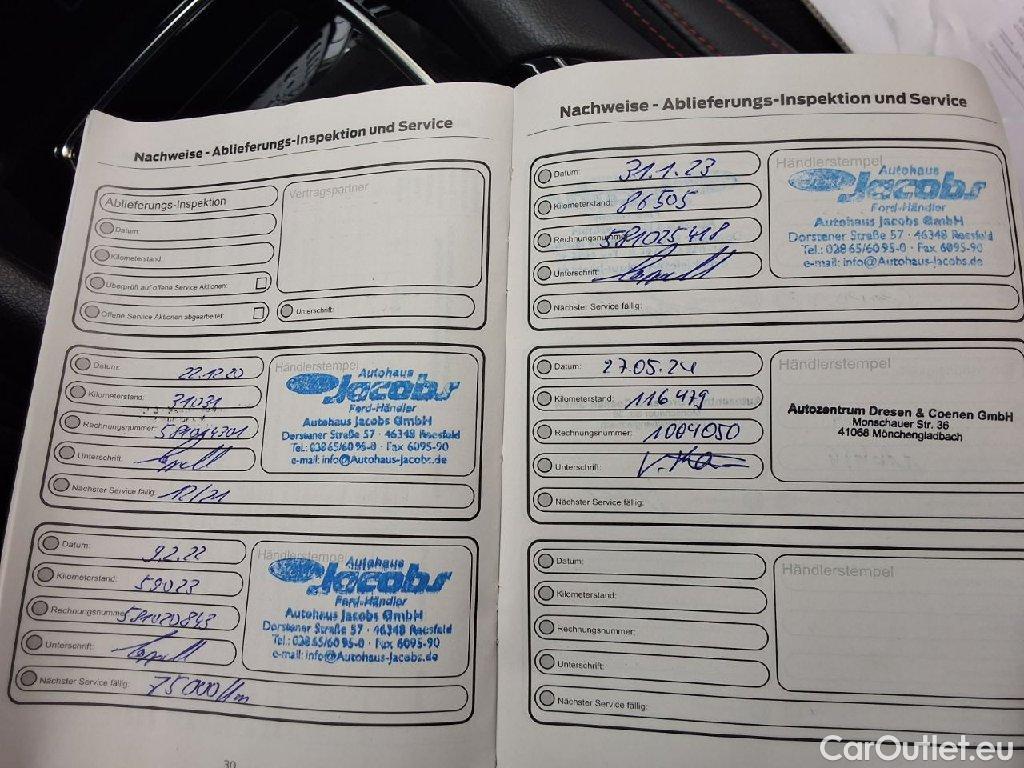 Nachweise - Ablieferungs-Inspektion und Service
Ablieferungs-Inspektion
Vertragspartner
Datum:
Kilometerstand:
Überprüft auf offene Service Aktionen:
Offene Service Aktionen abgearbeitet:
Unterschrift:
Datum: 22.12.20
Kilometerstand: 31031
Rechnungsnummer:
Unterschrift:
Nächster Service fällig: 12/21
Händlerstempel
Autohaus
Jacobs
Ford-Händler
Autohaus Jacobs GmbH
Dorstener Straße 57 · 46348 Raesfeld
Tel.: 02865/6095-0 · Fax 6095-90
e-mail: info@Autohaus-Jacobs.de
Datum: 9.2.22
Kilometerstand: 59023
Rechnungsnummer: 591020843
Unterschrift:
Nächster Service fällig: 75000 km
Händlerstempel
Autohaus
Jacobs
Ford-Händler
Autohaus Jacobs GmbH
Dorstener Straße 57 · 46348 Raesfeld
Tel.: 02865/6095-0 · Fax 6095-90
e-mail: info@Autohaus-Jacobs.de
30
Nachweise - Ablieferungs-Inspektion und Service
Datum: 31.1.23
Kilometerstand: 86505
Rechnungsnummer: 591025418
Unterschrift:
Nächster Service fällig:
Händlerstempel
Autohaus
Jacobs
Ford-Händler
Autohaus Jacobs GmbH
Dorstener Straße 57 · 46348 Raesfeld
Tel.: 02865/6095-0 · Fax 6095-90
e-mail: info@Autohaus-Jacobs.de
Datum: 27.05.24
Kilometerstand: 116479
Rechnungsnummer: 1004050
Unterschrift:
Nächster Service fällig:
Händlerstempel
Autozentrum Dresen & Coenen GmbH
Monschauer Str. 36
41068 Mönchengladbach
Datum:
Kilometerstand:
Rechnungsnummer:
Unterschrift:
Nächster Service fällig:
Händlerstempel
CarOutlet.eu